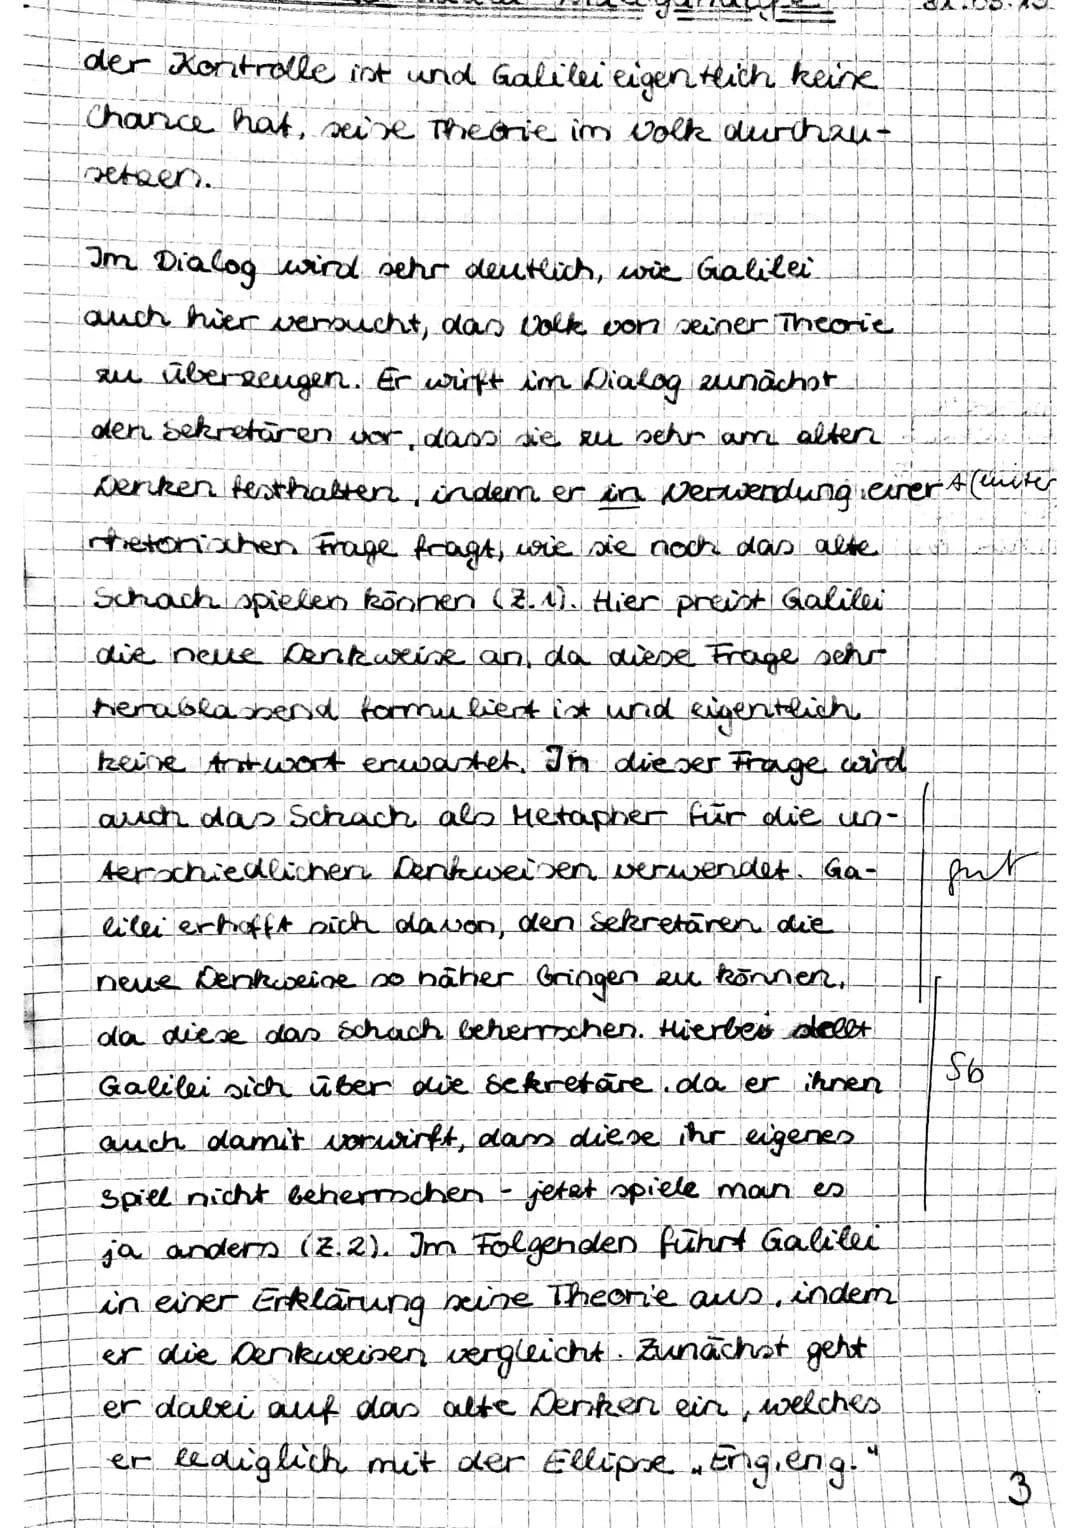 der Kontrolle ist und Galilei eigentlich keine
Chance hat, seine Theorie im Volk durchzu-
setzen.
Im Dialog wird sehr deutlich, wie Galilei
auch hier versucht, das Volk von seiner Theorie
zu überzeugen. Er wirft im Dialog zunächst
den Sekretären vor, dass sie zu sehr am alten
Denken festhalten, indem er in Verwendung einer A (unter
rhetorischen Frage fragt, wie sie noch das alte
Schach spielen können (Z.1). Hier preist Galilei
die neue Denkweise an, da diese Frage sehr
herablassend formuliert ist und eigentlich
keine Antwort erwartet. In dieser Frage wird
auch das Schach als Metapher für die un-
terschiedlichen Denkweisen verwendet. Ga- gut
lilei erhofft sich davon, den Sekretären die
neue Denkweise so näher bringen zu können,
da diese das Schach beherrschen. Hierbei stellt
Galilei sich über die Sekretäre, da er ihnen Sb
auch damit vorwirft, dass diese ihr eigenes
Spiel nicht beherrschen - jetzt spiele man es
ja anders (Z.2). Im Folgenden führt Galilei
in einer Erklärung seine Theorie aus, indem
er die Denkweisen vergleicht. Zunächst geht
er dabei auf das alte Denken ein, welches
er lediglich mit der Ellipse „Eng, eng."
3